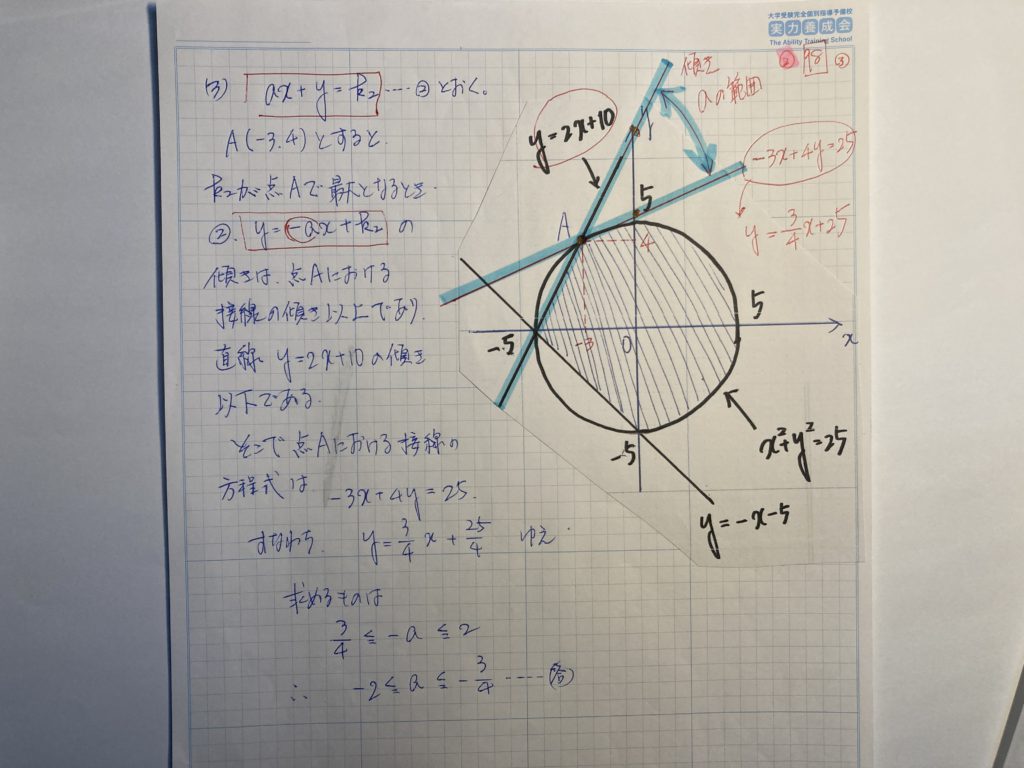 大学受験完全個別指導予備校
実力養成会
The Ability Training School
② 98 ③
(3) ax + y = k₂ ---- ② とおく。
A(-3.4) とすると
k₂が点Aで最大となるとき.
②. y = -ax + k₂ の
傾きは、点Aにおける
接線の傾き以上であり.
直線 y = 2x+10 の傾き
以下である.
そこで点Aにおける接線の
方程式は -3x+4y = 25.
すなわち. y = 3/4 x + 25/4 ゆえ.
求めるものは
3/4 ≦ -a ≦ 2
∴ -2 ≦ a ≦ -3/4 ---- (答)
傾き
aの範囲
y=2x+10
-3x+4y=25
y = 3/4 x + 25
A
5
4
-5
-3
0
5
x
-5
x²+y²=25
y=-x-5